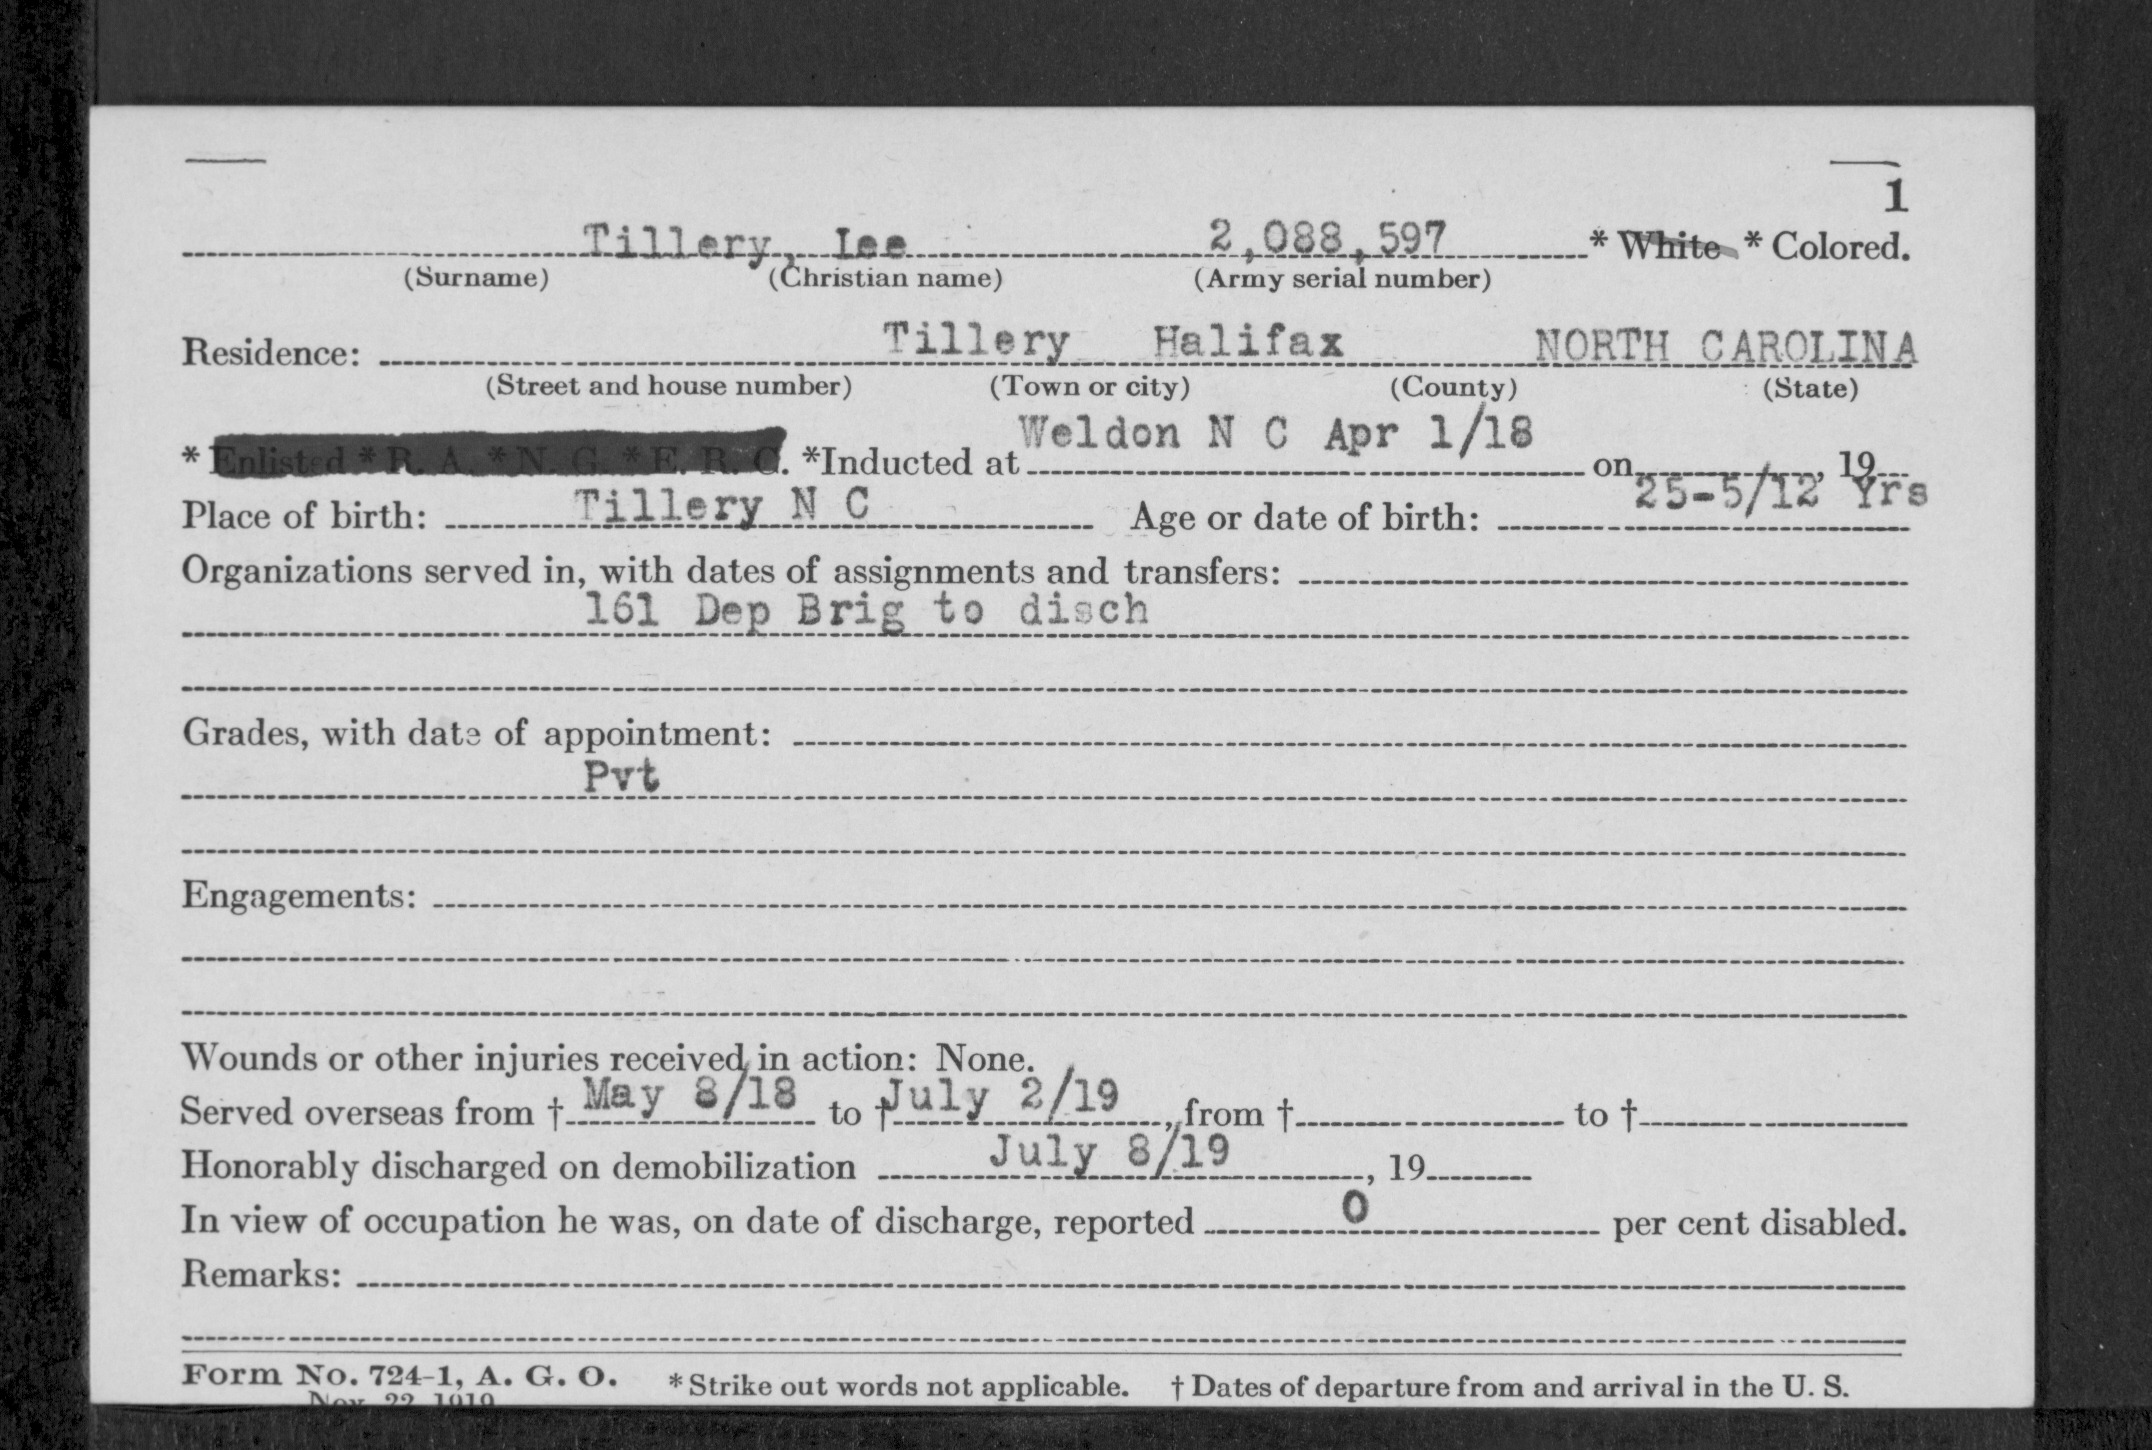 1
Tillery, Lee 2,088,597 * White * Colored.
(Surname) (Christian name) (Army serial number)
Residence: Tillery Halifax NORTH CAROLINA
(Street and house number) (Town or city) (County) (State)
* Enlisted * R. A. * N. G. * E. R. C. *Inducted at Weldon N C Apr 1/18 on , 19
Place of birth: Tillery N C Age or date of birth: 25-5/12 Yrs
Organizations served in, with dates of assignments and transfers:
161 Dep Brig to disch
Grades, with date of appointment:
Pvt
Engagements:
Wounds or other injuries received in action: None.
Served overseas from † May 8/18 to † July 2/19, from † to †
Honorably discharged on demobilization July 8/19, 19
In view of occupation he was, on date of discharge, reported 0 per cent disabled.
Remarks:
Form No. 724-1, A. G. O. * Strike out words not applicable. † Dates of departure from and arrival in the U. S.
Nov. 22, 1919